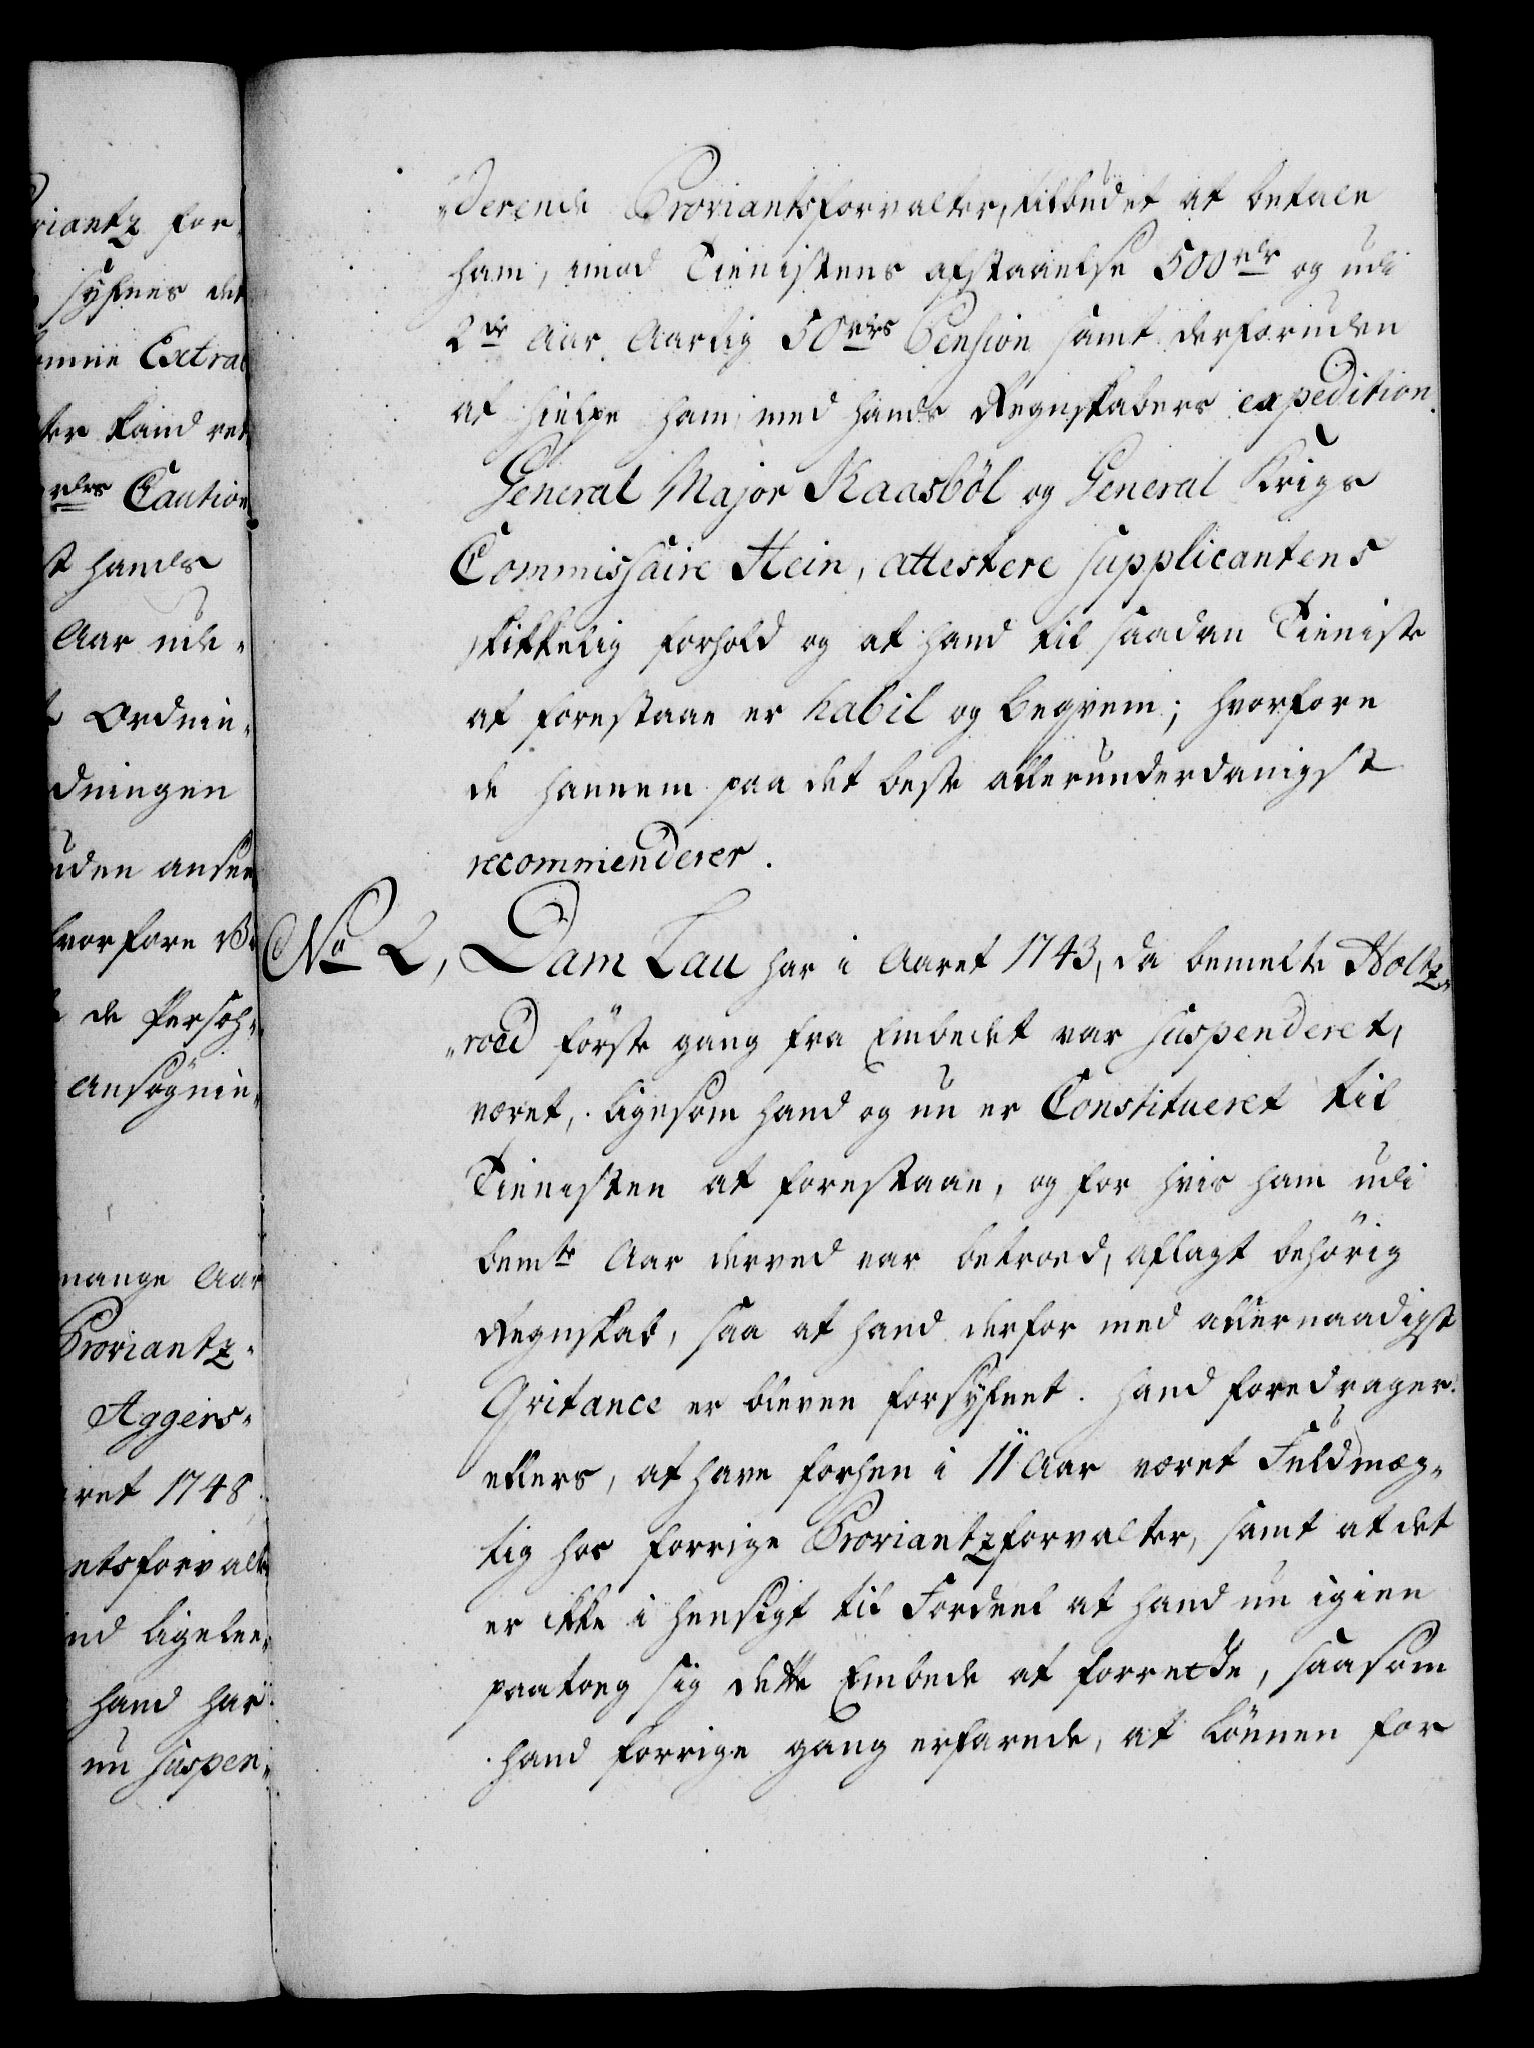 riantz for-
sÿhnes det
omme Extrac
ter kand ret
rdrs Caution
st hands
Aar ude-
t Ordnin-
dningen
uden ansee
hvorfore Be
de Persoh-
ansøgnin-
mange Aar
Proviantz-
Aggers-
ret 1748
ntsforvalt
nd ligelee-
hand har
nu suspen-
-derede Proviantsforvalter, tilbudet at betale
ham, imod Tienistens afstaaelse 500 rdr og udi
2de Aar Aarlig 50 rdrs Pension samt desforuden
at hielpe ham med hands Regnskabers expedition.
General Major Kaasböl og General Krigs
Commissaire Hein, attestere supplicantens
skikkelig forhold og at hand til saadan Tieniste
at forestaae er habil og beqvem; hvorfore
de hannem paa det beste allerunderdanigst
recommenderer.
No 2, Dam Lau har i Aaret 1743, da bemelte Holtz-
-roed förste gang fra Embedet var suspenderet,
været, ligesom hand og nu er Constitueret til
Tienisten at forestaae, og for hvis ham udi
bemte Aar derved var betroed, aflagt behörig
Regnskab, saa at hand derfor med allernaadigst
Qvitance er bleven forsÿhnet. Hand foredrager
ellers, at have forhen i 11 Aar været Fuldmæg-
tig hos forrige Proviantzforvalter, samt at det
er ikke i hensigt til Fordeel at hand nu igien
paatoeg sig dette Embede at forrette, saasom
hand forrige gang erfarede, at Lönnen for